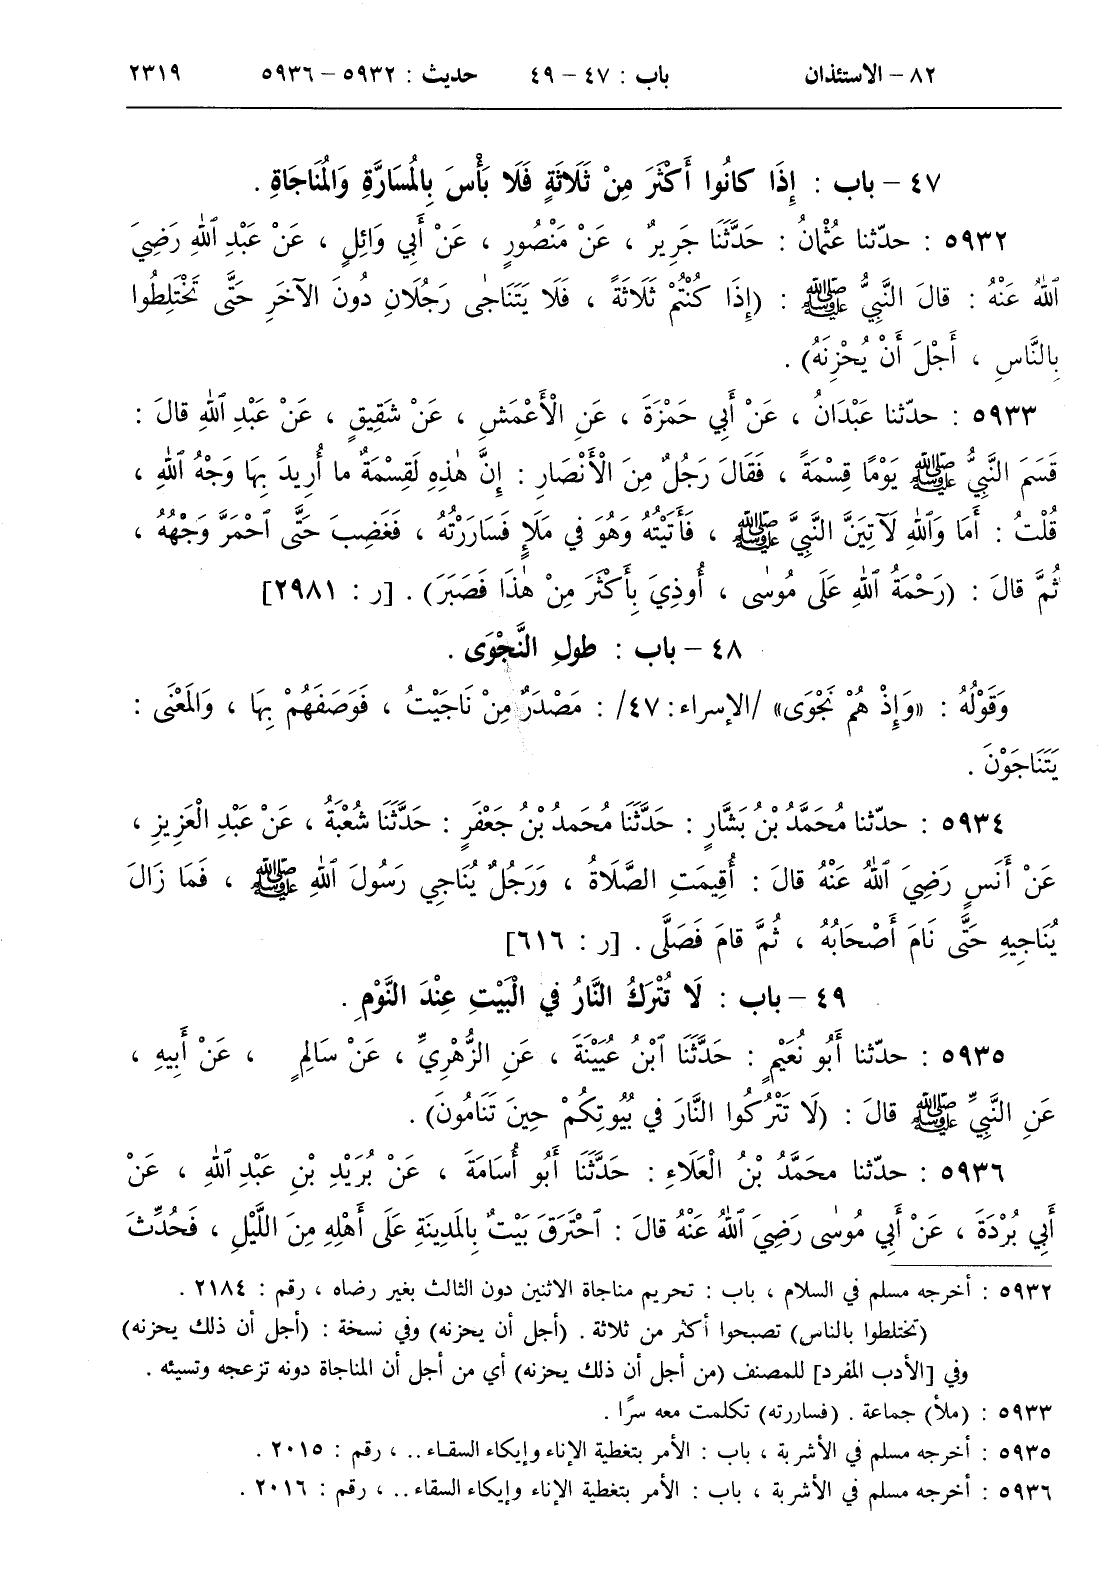 ٨٢ – الاستئذان باب : ٤٧ – ٤٩ حديث : ٥٩٣٢ – ٥٩٣٦ ٢٣١٩
٤٧ – باب : إِذَا كانُوا أَكْثَرَ مِنْ ثَلَاثَةٍ فَلَا بَأْسَ بِالْمُسَارَّةِ وَالْمُنَاجَاةِ .
٥٩٣٢ : حدّثنا عُثْمانُ : حَدَّثَنَا جَرِيرٌ ، عَنْ مَنْصُورٍ ، عَنْ أَبِي وَائِلٍ ، عَنْ عَبْدِ ٱللهِ رَضِيَ
ٱللهُ عَنْهُ : قالَ النَّبِيُّ ﷺ : (إِذَا كُنْتُمْ ثَلَاثَةً ، فَلَا يَتَنَاجٰى رَجُلَانِ دُونَ الآخَرِ حَتَّى تَخْتَلِطُوا
بِالنَّاسِ ، أَجْلَ أَنْ يُحْزِنَهُ) .
٥٩٣٣ : حدّثنا عَبْدَانُ ، عَنْ أَبِي حَمْزَةَ ، عَنِ الْأَعْمَشِ ، عَنْ شَقِيقٍ ، عَنْ عَبْدِ ٱللهِ قالَ :
قَسَمَ النَّبِيُّ ﷺ يَوْمًا قِسْمَةً ، فَقَالَ رَجُلٌ مِنَ الْأَنْصَارِ : إِنَّ هٰذِهِ لَقِسْمَةٌ ما أُرِيدَ بِهَا وَجْهُ ٱللهِ ،
قُلْتُ : أَمَا وَٱللهِ لَآتِيَنَّ النَّبِيَّ ﷺ ، فَأَتَيْتُهُ وَهُوَ فِي مَلَإٍ فَسَارَرْتُهُ ، فَغَضِبَ حَتَّى ٱحْمَرَّ وَجْهُهُ ،
ثُمَّ قالَ : (رَحْمَةُ ٱللهِ عَلَى مُوسٰى ، أُوذِيَ بِأَكْثَرَ مِنْ هٰذَا فَصَبَرَ) . [ر : ٢٩٨١]
٤٨ – باب : طولِ النَّجْوَى .
وَقَوْلُهُ : «وَإِذْ هُمْ نَجْوَى» /الإسراء: ٤٧/ : مَصْدَرٌ مِنْ نَاجَيْتُ ، فَوَصَفَهُمْ بِهَا ، وَالمَعْنَى :
يَتَنَاجَوْنَ .
٥٩٣٤ : حدّثنا مُحَمَّدُ بْنُ بَشَّارٍ : حَدَّثَنَا مُحَمدُ بْنُ جَعْفَرٍ : حَدَّثَنَا شُعْبَةُ ، عَنْ عَبْدِ الْعَزِيزِ ،
عَنْ أَنَسٍ رَضِيَ ٱللهُ عَنْهُ قالَ : أُقِيمَتِ الصَّلَاةُ ، وَرَجُلٌ يُنَاجِي رَسُولَ ٱللهِ ﷺ ، فَمَا زَالَ
يُنَاجِيهِ حَتَّى نَامَ أَصْحَابُهُ ، ثُمَّ قامَ فَصَلَّى . [ر : ٦١٦]
٤٩ – باب : لَا تُتْرَكُ النَّارُ فِي الْبَيْتِ عِنْدَ النَّوْمِ .
٥٩٣٥ : حدّثنا أَبُو نُعَيْمٍ : حَدَّثَنَا ٱبْنُ عُيَيْنَةَ ، عَنِ الزُّهْرِيِّ ، عَنْ سَالِمٍ ، عَنْ أَبِيهِ ،
عَنِ النَّبِيِّ ﷺ قالَ : (لَا تَتْرُكُوا النَّارَ فِي بُيُوتِكُمْ حِينَ تَنَامُونَ) .
٥٩٣٦ : حدّثنا محَمَّدُ بْنُ الْعَلَاءِ : حَدَّثَنَا أَبُو أُسَامَةَ ، عَنْ بُرَيْدِ بْنِ عَبْدِ ٱللهِ ، عَنْ
أَبِي بُرْدَةَ ، عَنْ أَبِي مُوسٰى رَضِيَ ٱللهُ عَنْهُ قالَ : ٱحْتَرَقَ بَيْتٌ بِالمَدِينَةِ عَلَى أَهْلِهِ مِنَ اللَّيْلِ ، فَحُدِّثَ
٥٩٣٢ : أخرجه مسلم في السلام ، باب : تحريم مناجاة الاثنين دون الثالث بغير رضاه ، رقم : ٢١٨٤ .
(تختلطوا بالناس) تصبحوا أكثر من ثلاثة . (أجل أن يحزنه) وفي نسخة : (أجل أن ذلك يحزنه)
وفي [الأدب المفرد] للمصنف (من أجل أن ذلك يحزنه) أي من أجل أن المناجاة دونه تزعجه وتسيئه .
٥٩٣٣ : (ملأ) جماعة . (فساررته) تكلمت معه سرًا .
٥٩٣٥ : أخرجه مسلم في الأشربة ، باب : الأمر بتغطية الإناء وإيكاء السقاء .. ، رقم : ٢٠١٥ .
٥٩٣٦ : أخرجه مسلم في الأشربة ، باب : الأمر بتغطية الإناء وإيكاء السقاء .. ، رقم : ٢٠١٦ .